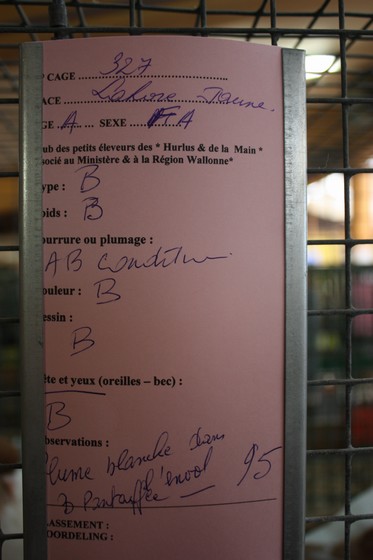 ° CAGE 327
ACE Lahore Jaune
GE A SEXE A
ub des petits éleveurs des * Hurlus & de la Main *
socié au Ministère & à la Région Wallonne*
ype : B
oids : B
ourrure ou plumage :
AB condition
ouleur : B
essin :
B
ête et yeux (oreilles – bec) :
B
bservations :
plume blanche dans
l'envol 95
LASSEMENT :
OORDELING :